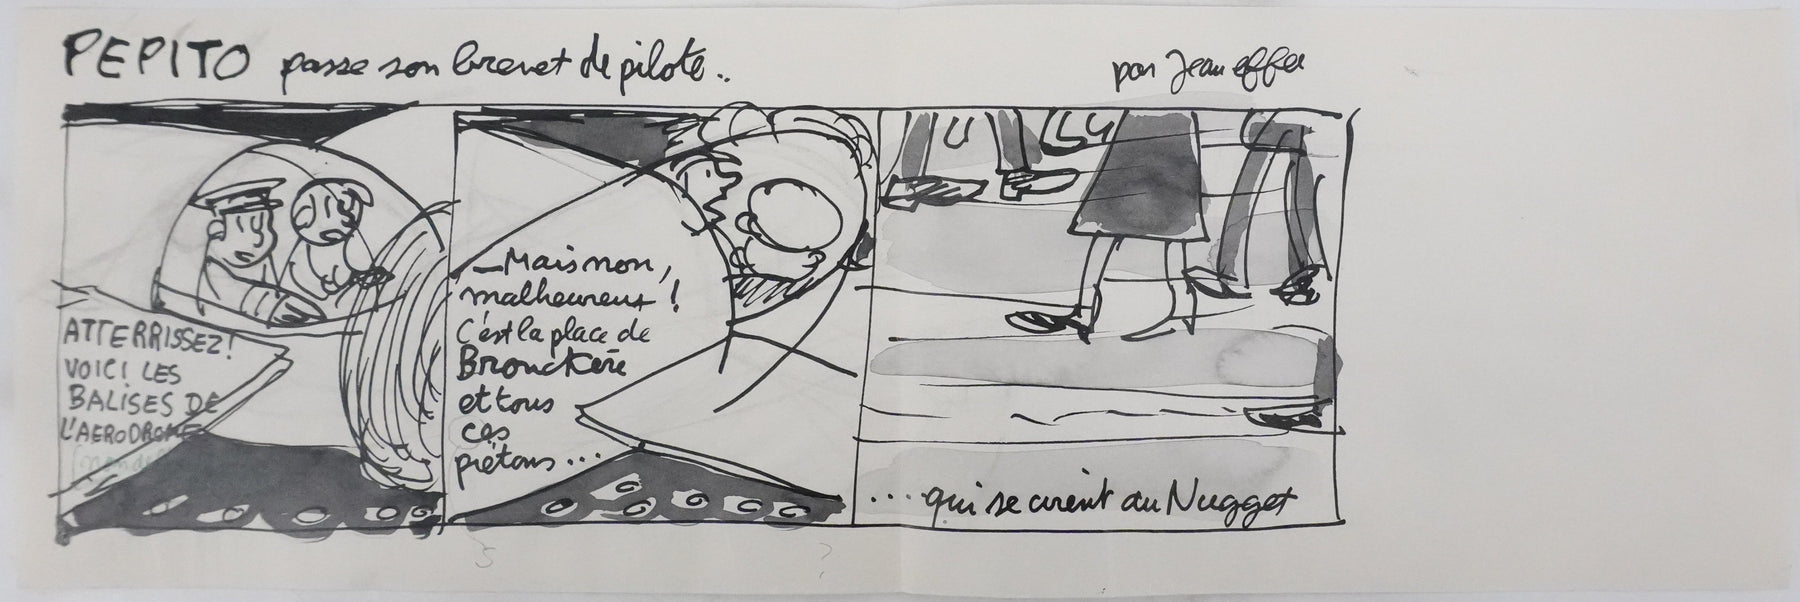 PEPITO passe son brevet de pilote..
par Jean effel
ATTERRISSEZ!
VOICI LES
BALISES DE
L'AERODROME
_Mais non,
malheureux !
C'est la place de
Brouckère
et tous
ces
piétons...
....qui se cirent au Nugget